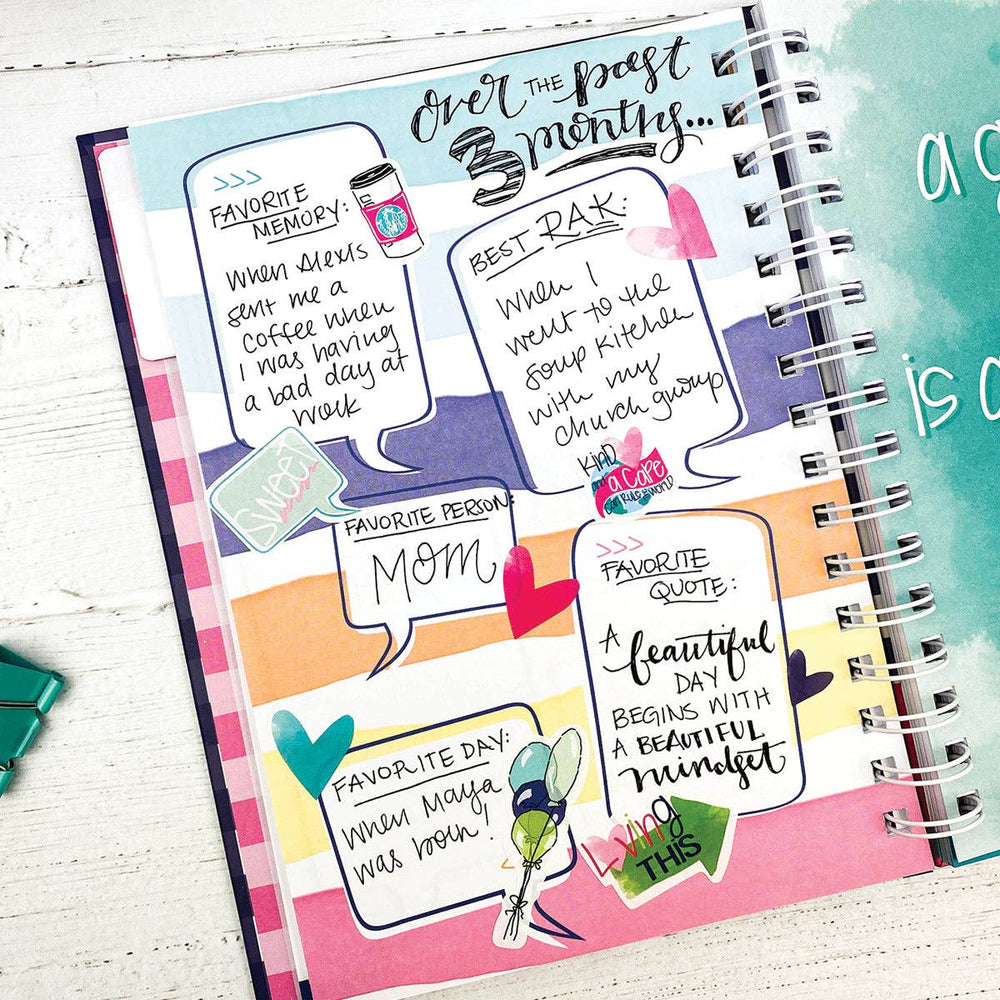 over THE past
3 months...
FAVORITE
MEMORY:
When Alexis
sent me a
coffee when
I was having
a bad day at
work
BEST RAK:
When I
went to the
soup kitchen
with my
church group
SWEET
KIND
a CAPE
CAN RULE THE WORLD
FAVORITE PERSON:
MOM
FAVORITE
QUOTE:
A
beautiful
DAY
BEGINS WITH
A BEAUTIFUL
mindset
FAVORITE DAY:
When Maya
was born!
Loving
THIS
a
is a